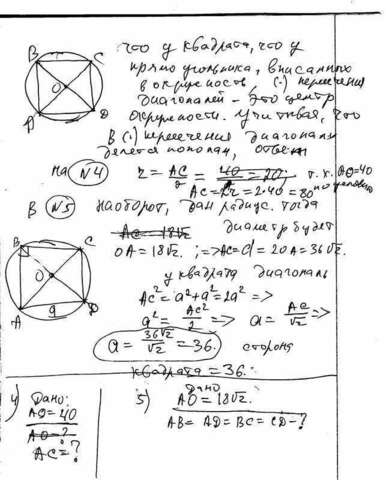 что у квадрата, что у
прямоугольника, вписанных
в окружность, (·) пересечения
диагоналей – это центр
окружности. Учитывая, что
в (·) пересечения диагонали
делятся пополам, ответ
B C
O
A D
на №4 r = AC/2 = 40/2 = 20; т.к. AO=40
AC = 2r = 2·40 = 80 по условию
В №5 наоборот, дан радиус. тогда
AC = 18√2 диаметр будет
OA = 18√2; => AC = d = 2OA = 36√2.
B C
O
A a D
у квадрата диагональ
AC² = a² + a² = 2a² =>
a² = AC²/2 => a = AC/√2 =>
a = 36√2/√2 = 36. сторона
квадрата = 36.
4) Дано:
AO = 40
AO = ?
AC = ?
5) Дано
AO = 18√2.
AB = AD = BC = CD - ?